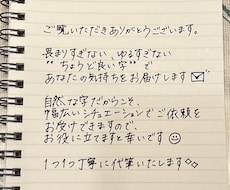 ご覧いただきありがとうございます。
畏まりすぎない、ゆるすぎない
"ちょうど良い字"で
あなたの気持ちをお届けします☑
自然な字だからこそ、
幅広いシチュエーションでご依頼を
お受けできますので、
お役に立てますと幸いです☺
1つ1つ丁寧に代筆いたします◇◇